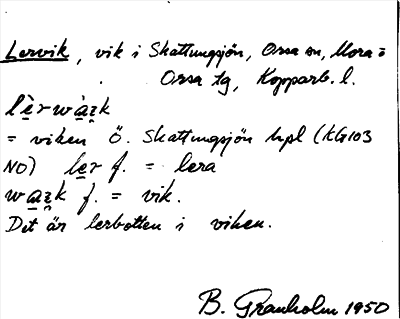 Lervik, vik i Skattungsjön, Orsa sn, Mora o
Orsa tg, Kopparb. l.
lèrwàzk
= viken Ö. Skattungsjön hpl (KG103
NO) ler f. = lera
wazk f. = vik.
Det är lerbotten i viken.
B. Granholm 1950